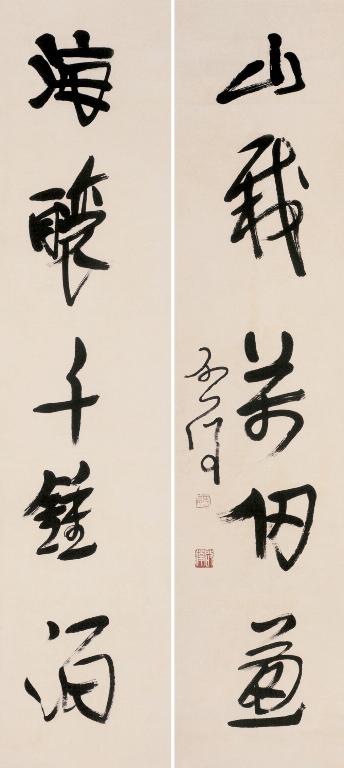 山栽萬仞蔥
海釀千鍾酒